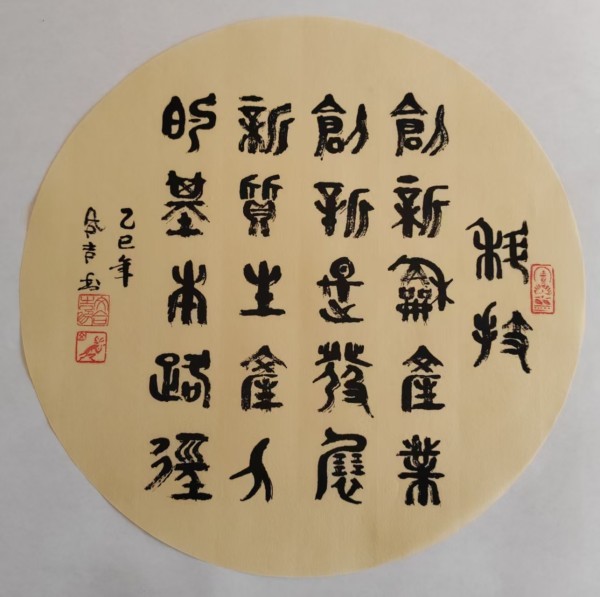 科技
創新龢產業
創新是發展
新質生產力
的基本路徑
乙巳年